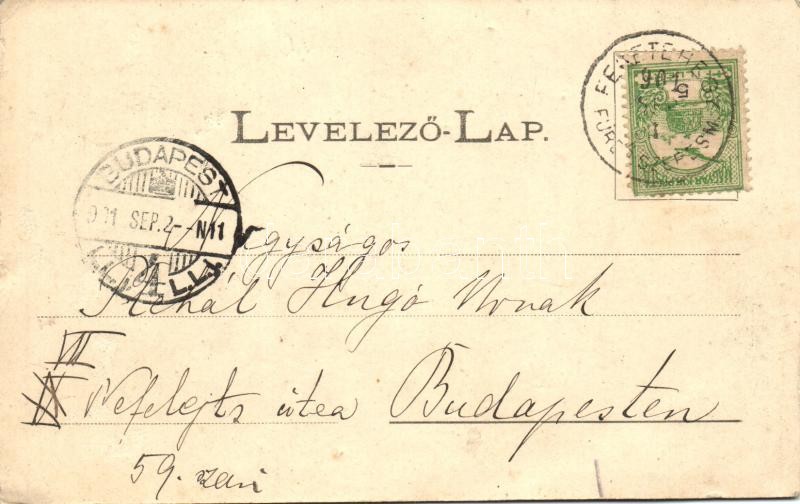 LEVELEZŐ-LAP.
BUDAPEST
901 SEP. 2 - N11
Nagyságos
Hugó Urnak
VII
Nefelejts útcza Budapesten
59. szám